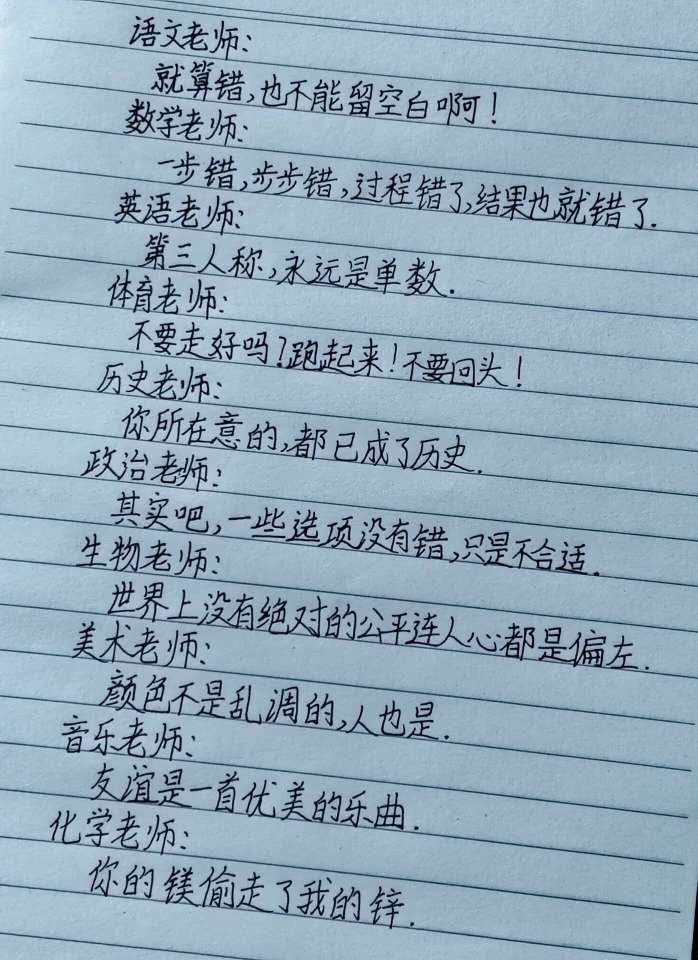 语文老师:
就算错,也不能留空白啊!
数学老师:
一步错,步步错,过程错了,结果也就错了.
英语老师:
第三人称,永远是单数.
体育老师:
不要走好吗?跑起来!不要回头!
历史老师:
你所在意的,都已成了历史.
政治老师:
其实吧,一些选项没有错,只是不合适.
生物老师:
世界上没有绝对的公平连人心都是偏左.
美术老师:
颜色不是乱调的,人也是.
音乐老师:
友谊是一首优美的乐曲.
化学老师:
你的镁偷走了我的锌.